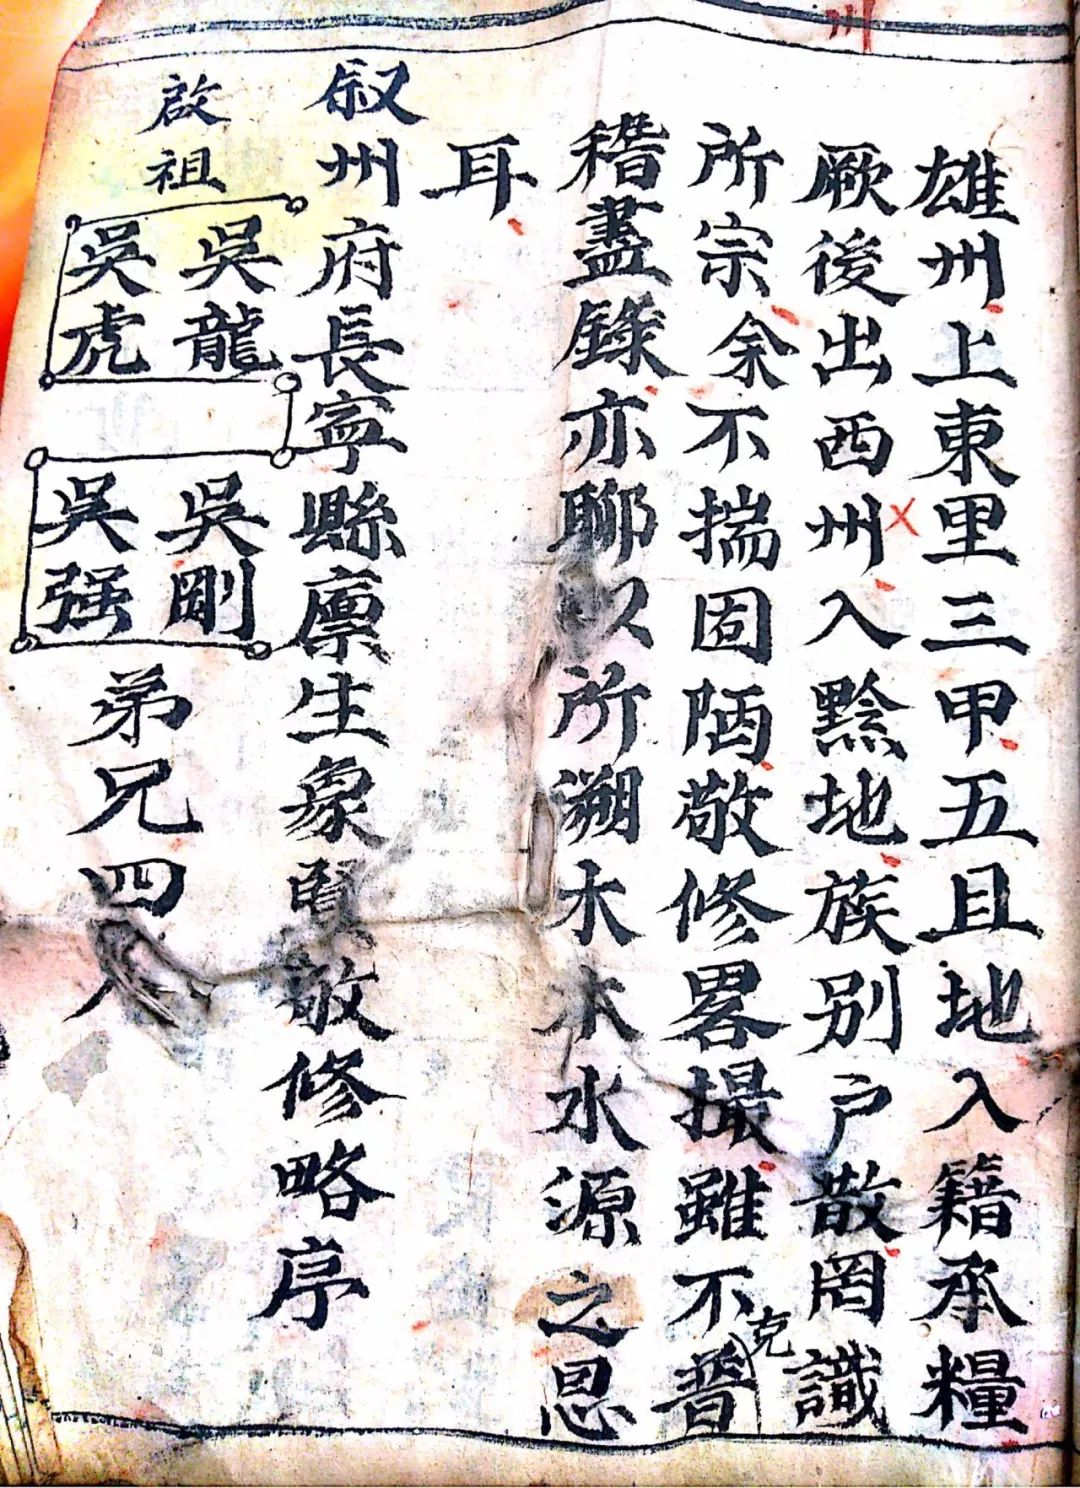 川
雄州上東里三甲五且地入籍承糧
厥後出西州入黔地族別户散罔識
所宗余不揣固陋敬修畧撮雖不普
克
稽盡錄亦聊以所溯木木水源之思
耳
叙州府長寧縣廪生象賢敬修略序
啟祖
吳龍
吳虎
吳剛
吳强
弟兄四人